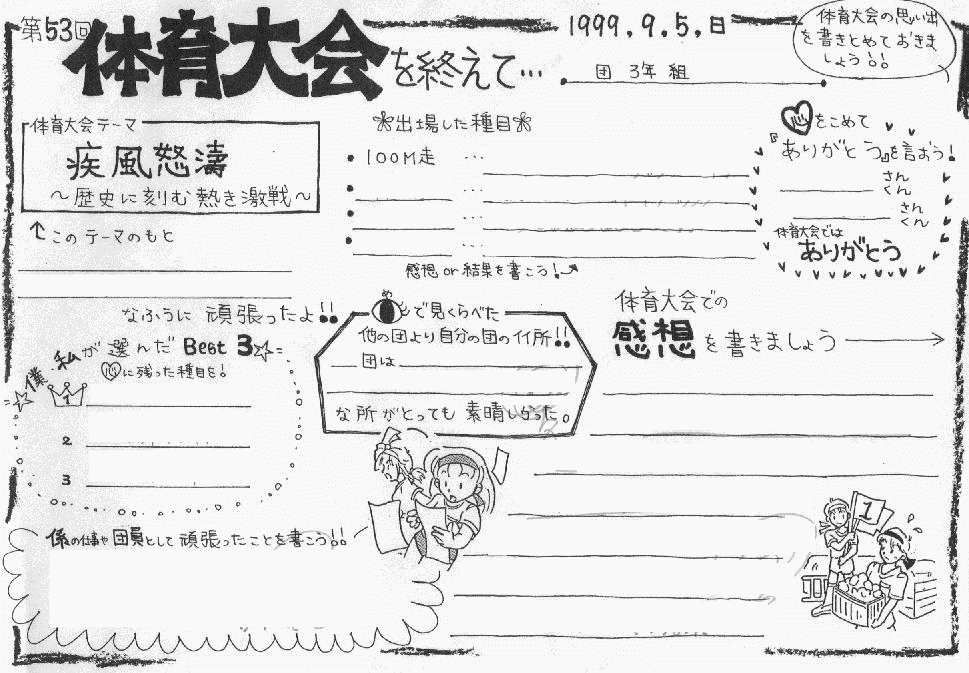 第53回 体育大会を終えて…
1999.9.5.日
団 3年 組
体育大会の思い出
を書きとめておきま
しょう!!
体育大会テーマ
疾風怒濤
～歴史に刻む熱き激戦～
↑このテーマのもと
なふうに 頑張ったよ!!
出場した種目
・100M走 …
・ …
・ …
・ …
感想 or 結果を書こう!
心をこめて
『ありがとう』を言おう!
さん
くん
さん
くん
体育大会では
ありがとう
僕 私が選んだ Best 3☆
心に残った種目を!
1
2
3
めで見くらべた
他の団より自分の団のイイ所!!
団は
な所がとっても 素晴しかった。
体育大会での
感想を書きましょう
係の仕事や団員として頑張ったことを書こう!!
1